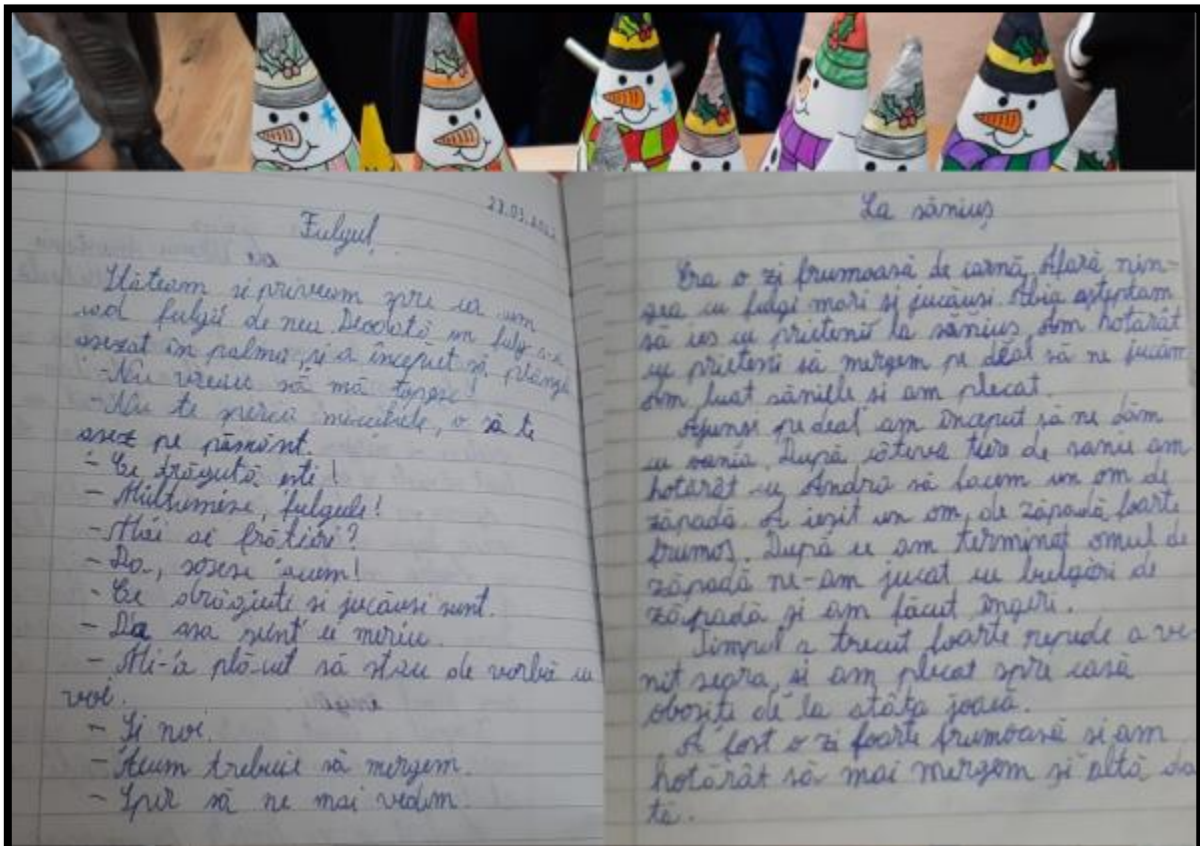 Fulgul
va
Stăteam și priveam spre ca um
cad fulgii de nea. Deodată un fulg s-a
asezat în palma, și a început să plângă
-Nu vreau să mă topesc!
-Nu te speria micuțule, o să te
asez pe pământ.
- Ce drăguță esti!
- Multumesc, fulgule!
- Mai ai frătiori?
- Da, sosesc acum!
- Ce drăgute si jucăusi sunt.
- Da asa sunt ei mereu.
- Mi-a plă-cut să stau de vorbă cu
voi.
- Si noi.
- Acum trebuie să mergem.
- Sper să ne mai vedem.
La săniuș
Era o zi frumoasă de iarnă. Afară nin-
gea cu fulgi mari și jucăusi. Abia așteptam
să ies cu prietenii la săniuș. Am hotărât
cu prietenii să mergem pe deal să ne jucăm
Am luat săniile si am plecat.
Ajunsi pe deal am început să ne dăm
cu sania. După câteva ture de saniu am
hotărât cu Andrei să facem un om de
zăpadă. A iesit un om de zăpadă foarte
frumos. După ce am terminat omul de
zăpadă ne-am jucat cu bulgări de
zăpadă și am făcut îngeri.
Timpul a trecut foarte repede a ve
nit seara, si am plecat spre casă
obosiți de la atâta joacă.
A fost o zi foarte frumoasă si am
hotărât să mai mergem și altă da
tă.